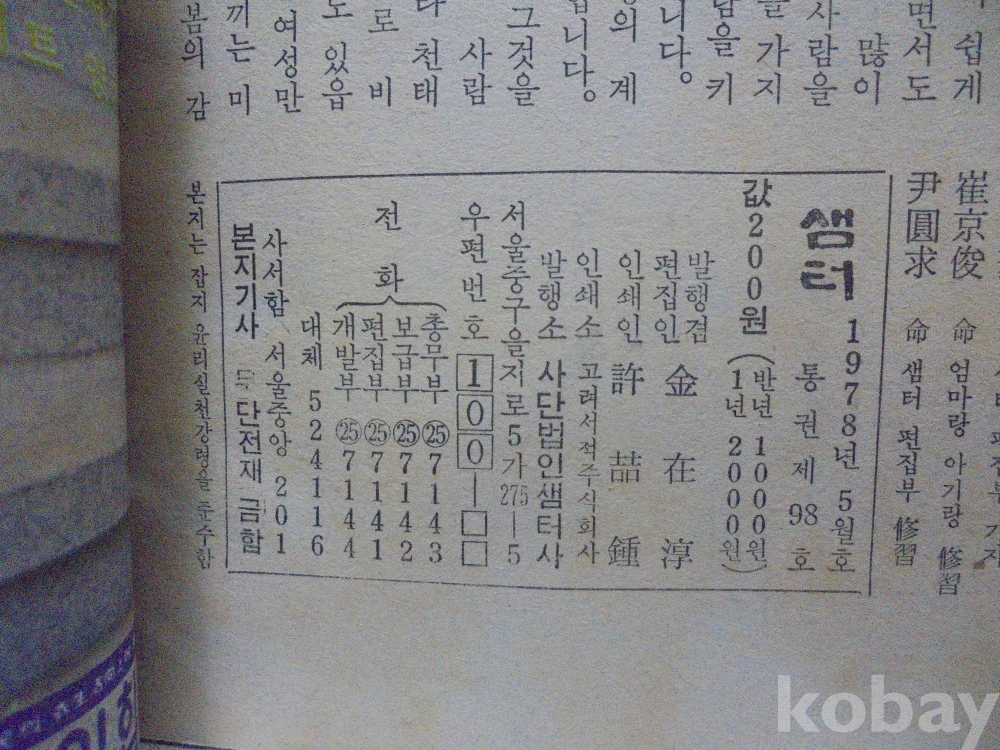 쉽게
면서도
많이
사람을
를 가지
람을 키
니다.
의 계
입니다.
그것을
사람
천태
로 비
도 있읍
여성만
끼는 미
봄의 감
崔京俊 命 엄마랑 아기랑 修習
尹圓求 命 샘터 편집부 修習
샘터
1978년 5월호
통권 제 98 호
값 200원 (반년 1000원
1년 2000원)
발행겸
편집인 金在淳
인쇄인 許喆鍾
인쇄소 고려서적주식회사
발행소 사단법인샘터사
서울중구을지로5가 275—5
우편번호 100—□□
전화
총무부 ㉕7143
보급부 ㉕7142
편집부 ㉕7141
개발부 ㉕7144
대체 524116
사서함 서울중앙 201
본지기사 단전재 금함
본지는 잡지 윤리실천강령을 준수함
kobay